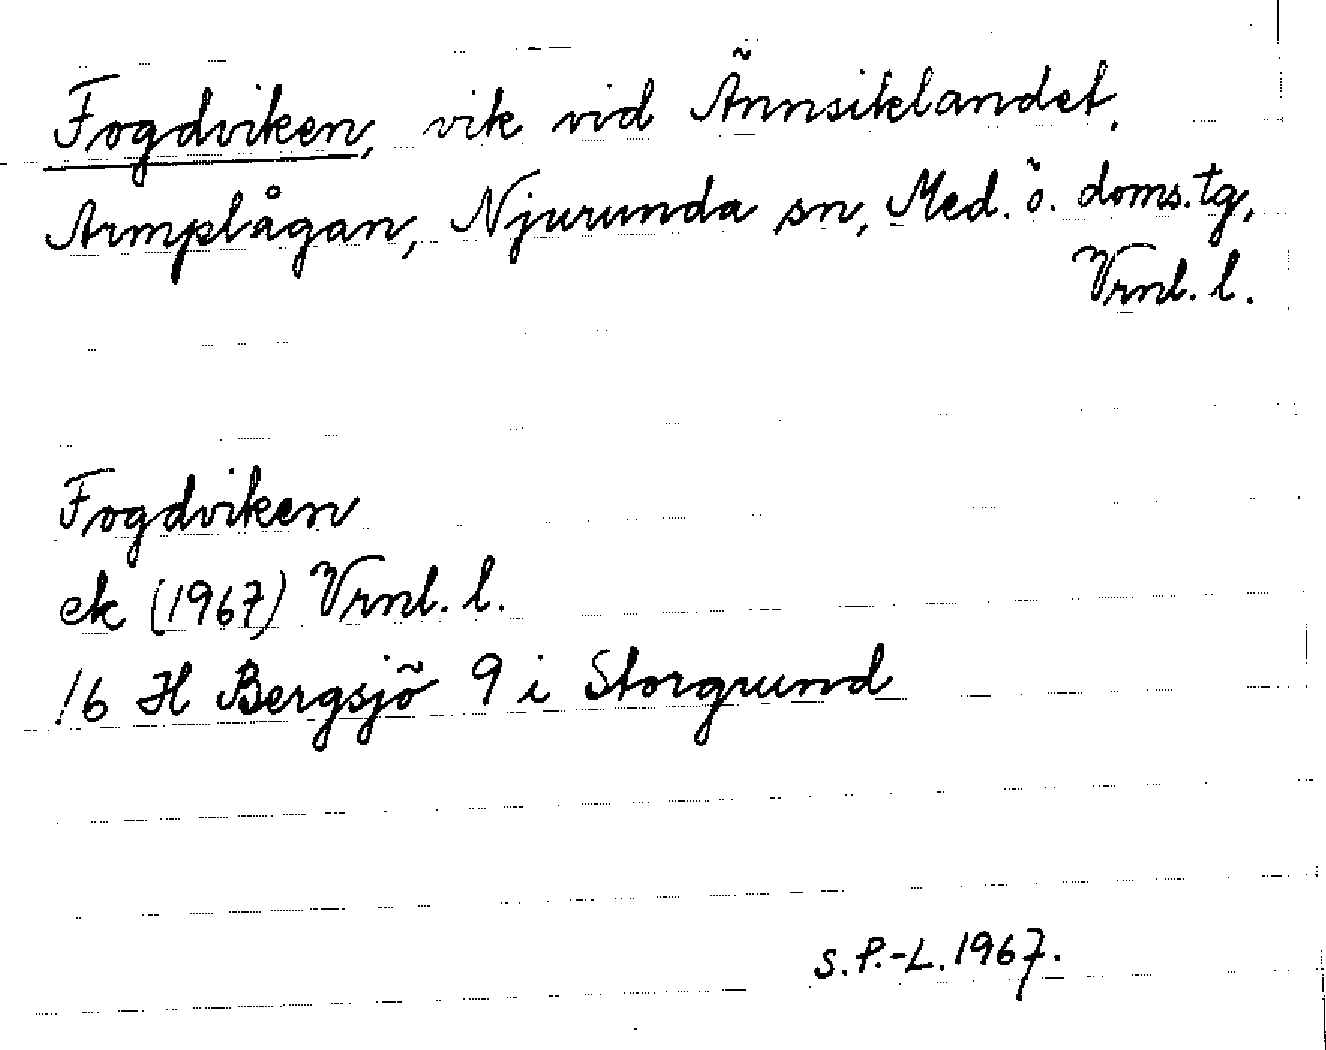 Fogdviken, vik vid Ännsiklandet,
Armplågan, Njurunda sn, Med. ö. doms. tg,
Vrnl. l.
Fogdviken
ek (1967) Vrnl. l.
16 H Bergsjö 9 i Storgrund
S. P.-L. 1967.